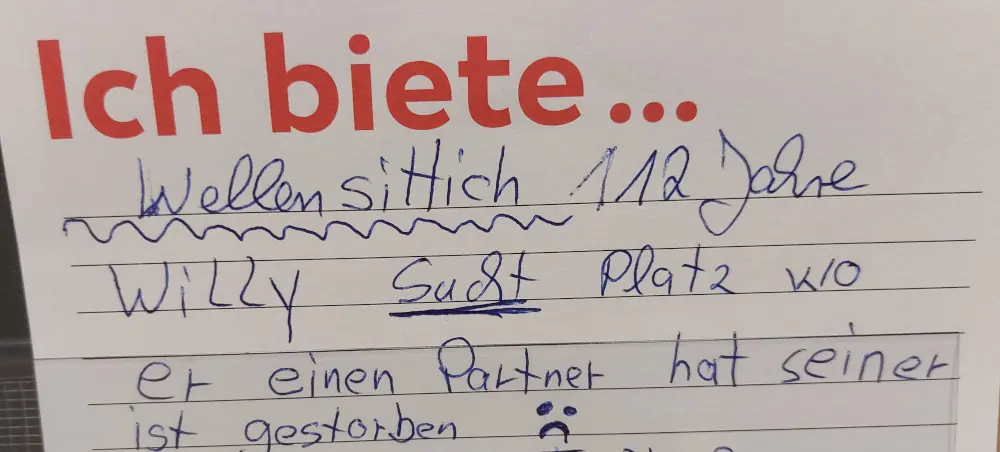 Ich biete...
Wellensittich 112 Jahre
Willy sucht Platz wo
er einen Partner hat seiner
ist gestorben